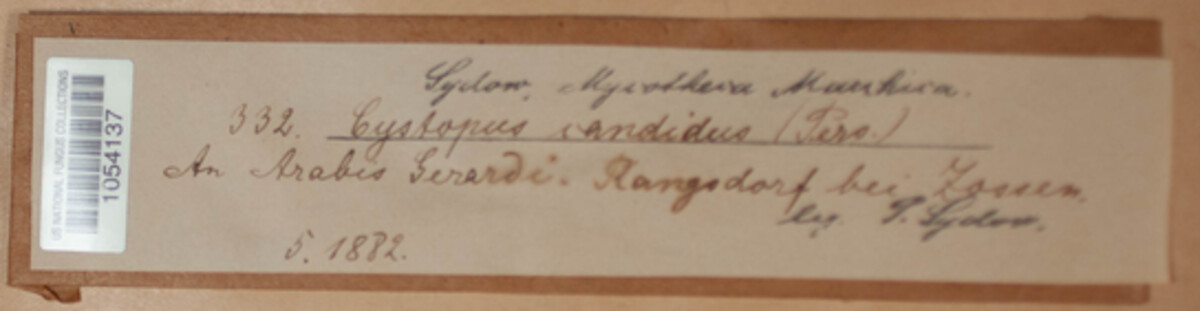 Sydow, Mycotheca Marchica.
332. Cystopus candidus (Pers.)
An Arabis Gerardi. Rangsdorf bei Zossen.
leg. P. Sydow.
5. 1882.
US NATIONAL FUNGUS COLLECTIONS
1054137